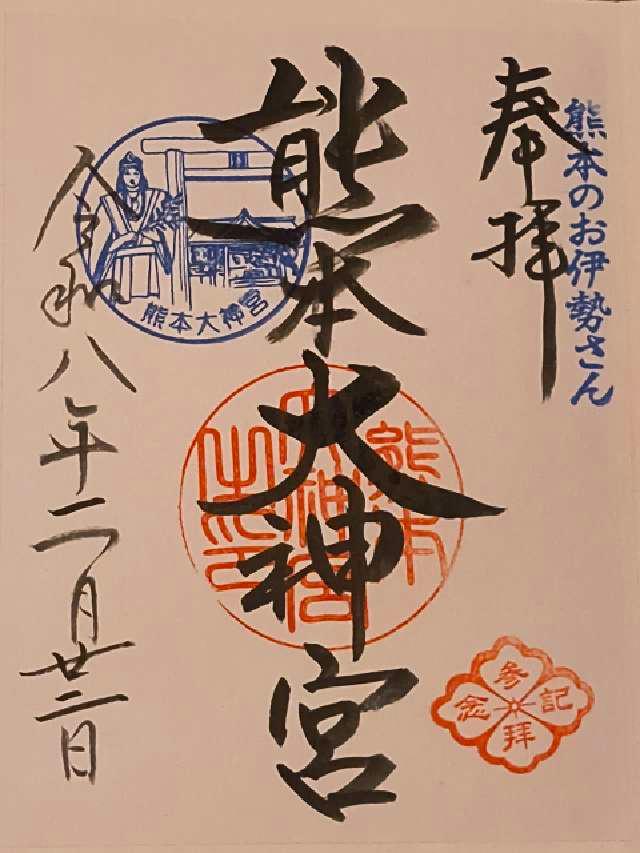 熊本のお伊勢さん
奉拝
熊本大神宮
熊本大神宮
熊本
大神宮
之印
参拝記念
令和八年二月廿二日